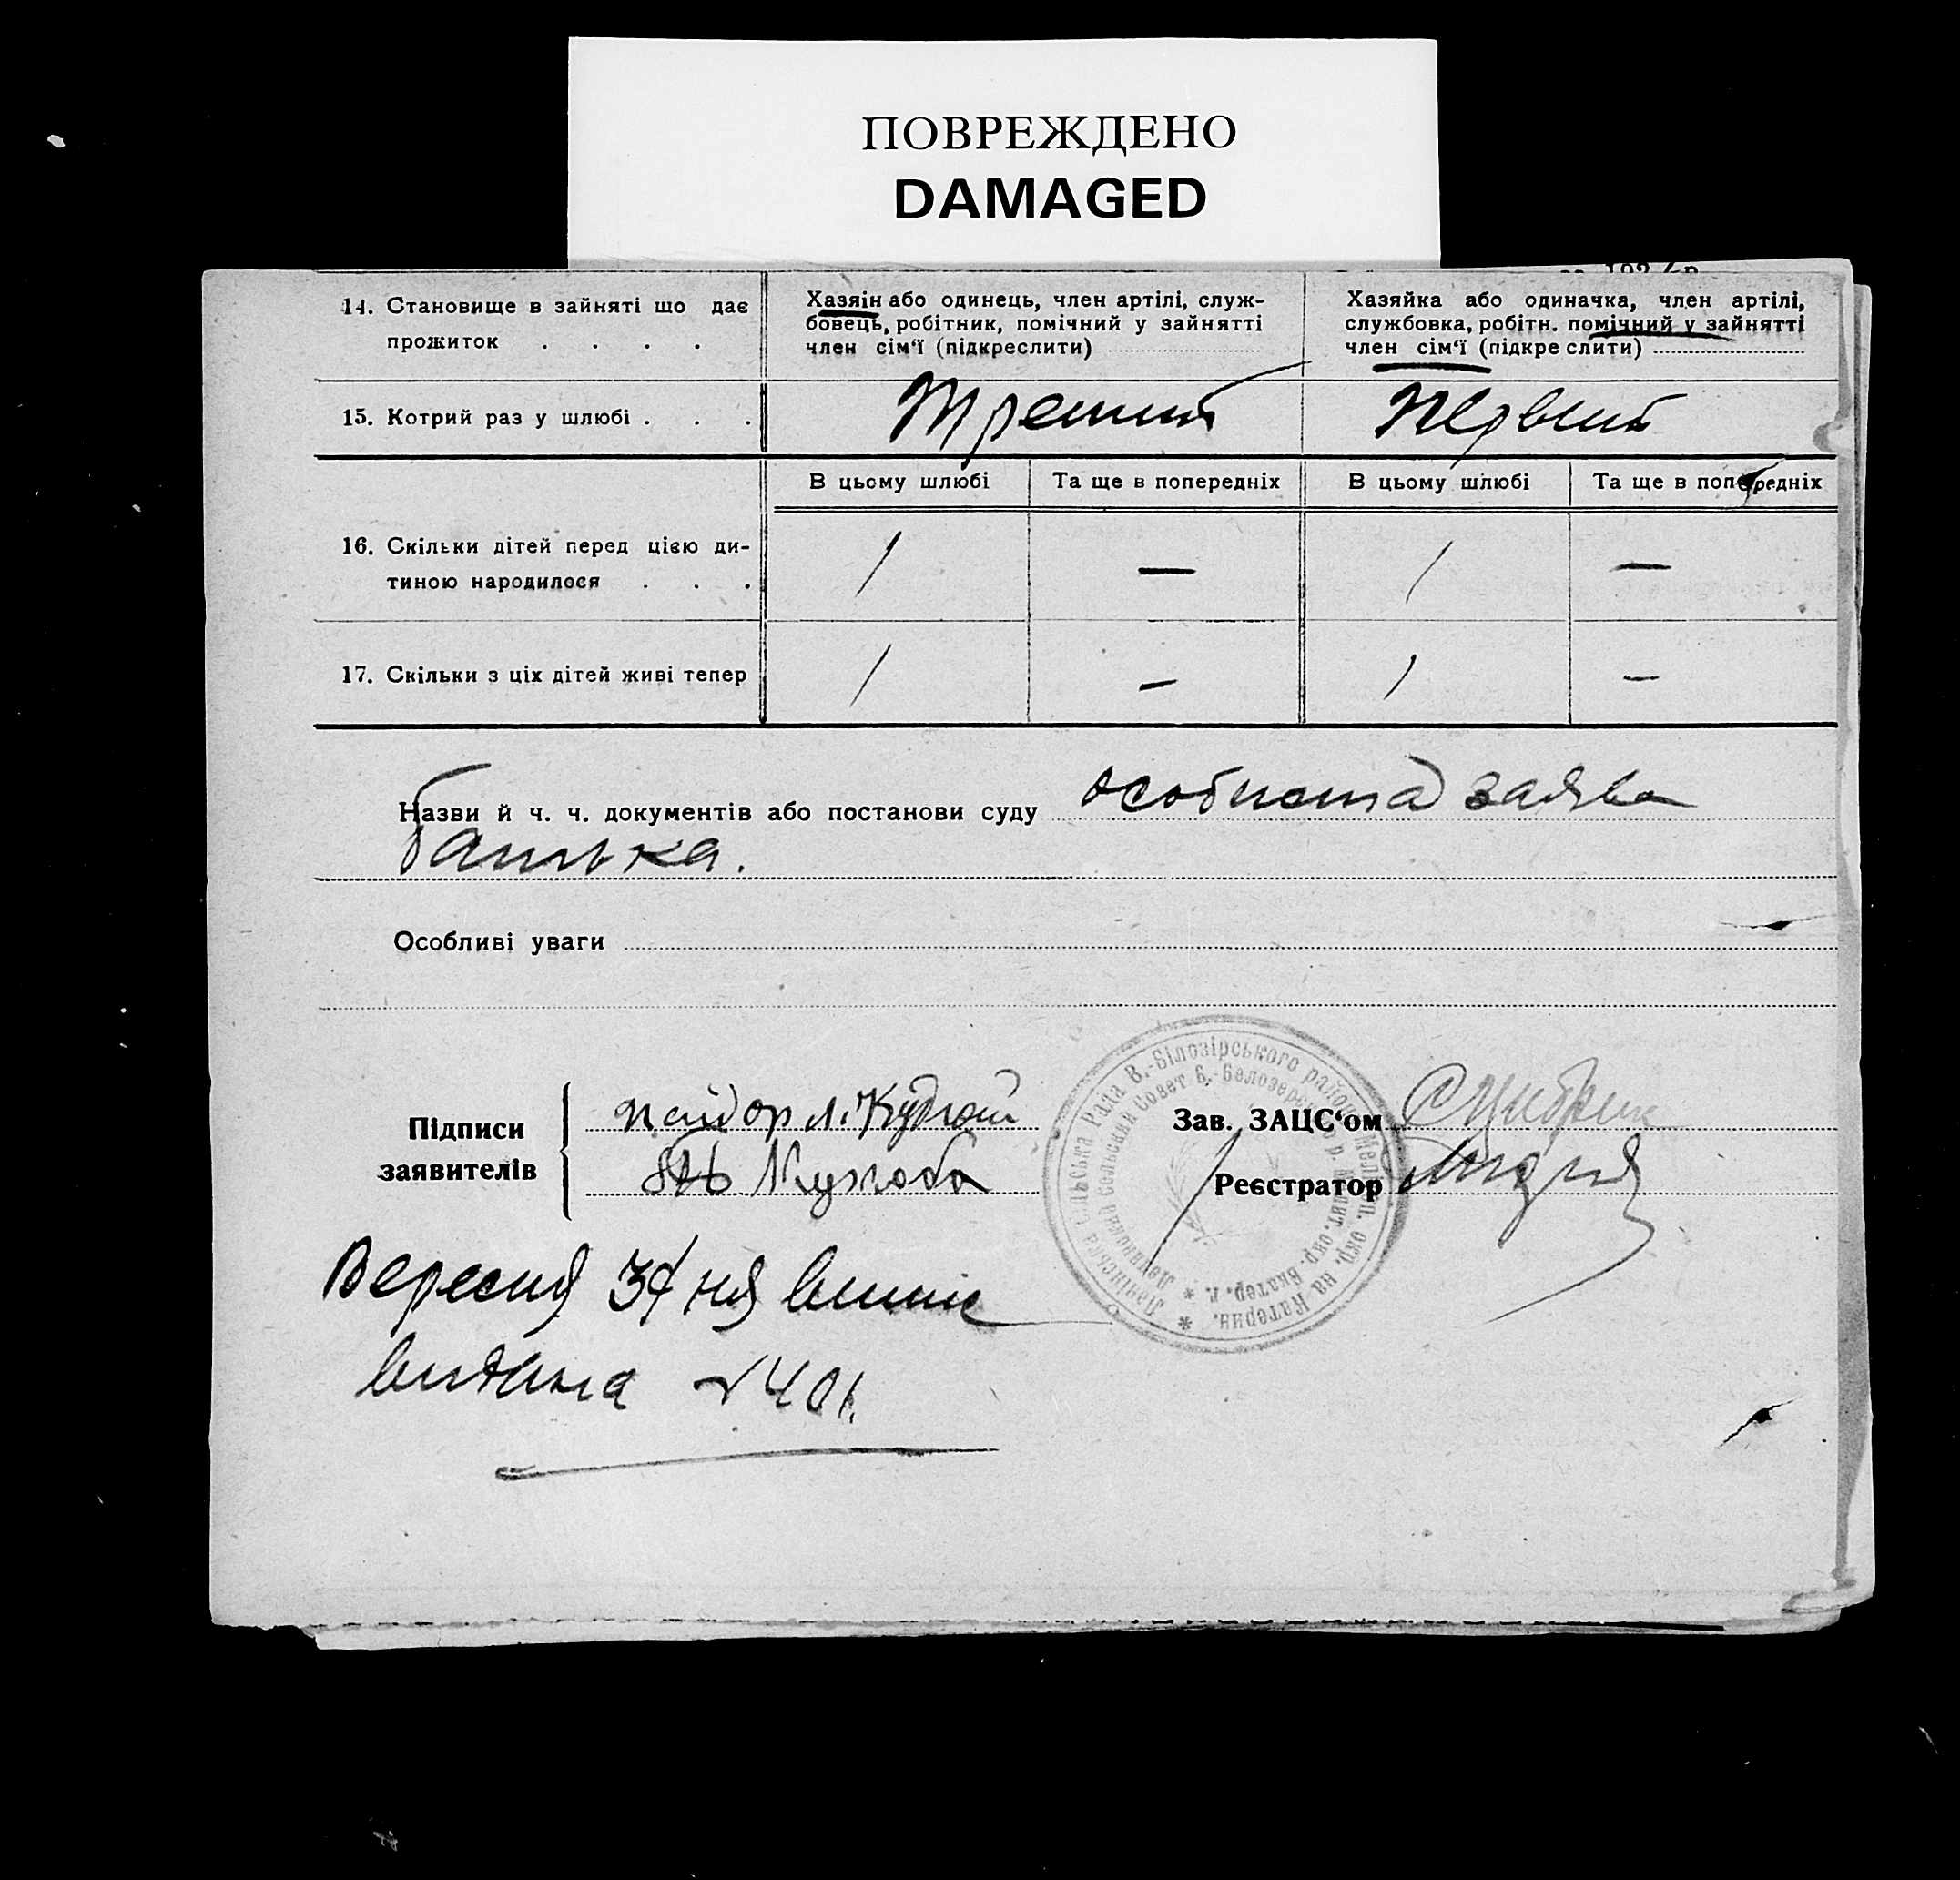 ПОВРЕЖДЕНО
DAMAGED
192 р
14. Становище в зайняті що дає
прожиток . . . .
Хазяін або одинець, член артілі, служ-
бовець, робітник, помічний у зайнятті
член сім‘ї (підкреслити)
Хазяйка або одиначка, член артілі,
службовка, робітн. помічний у зайнятті
член сім‘ї (підкреслити)
15. Котрий раз у шлюбі . . .
Третий
Первий
В цьому шлюбі
Та ще в попередніх
В цьому шлюбі
Та ще в попередніх
16. Скільки дітей перед цією ди-
тиною народилося . . .
1 — 1 —
17. Скільки з ціх дітей живі тепер
1 — 1 —
Назви й ч. ч. документів або постанови суду особиста заява
батька.
Особливі уваги
Підписи
заявителів
Зав. ЗАЦС‘ом
Реєстратор
Сільська Рада В.-Білозірського району Меліт. окр. на Катерин. *
Сельский Совет Б.-Белозерского р. Мелит. окр. Екатер. г. *
Вересня 3/ ня випис
видана 401.